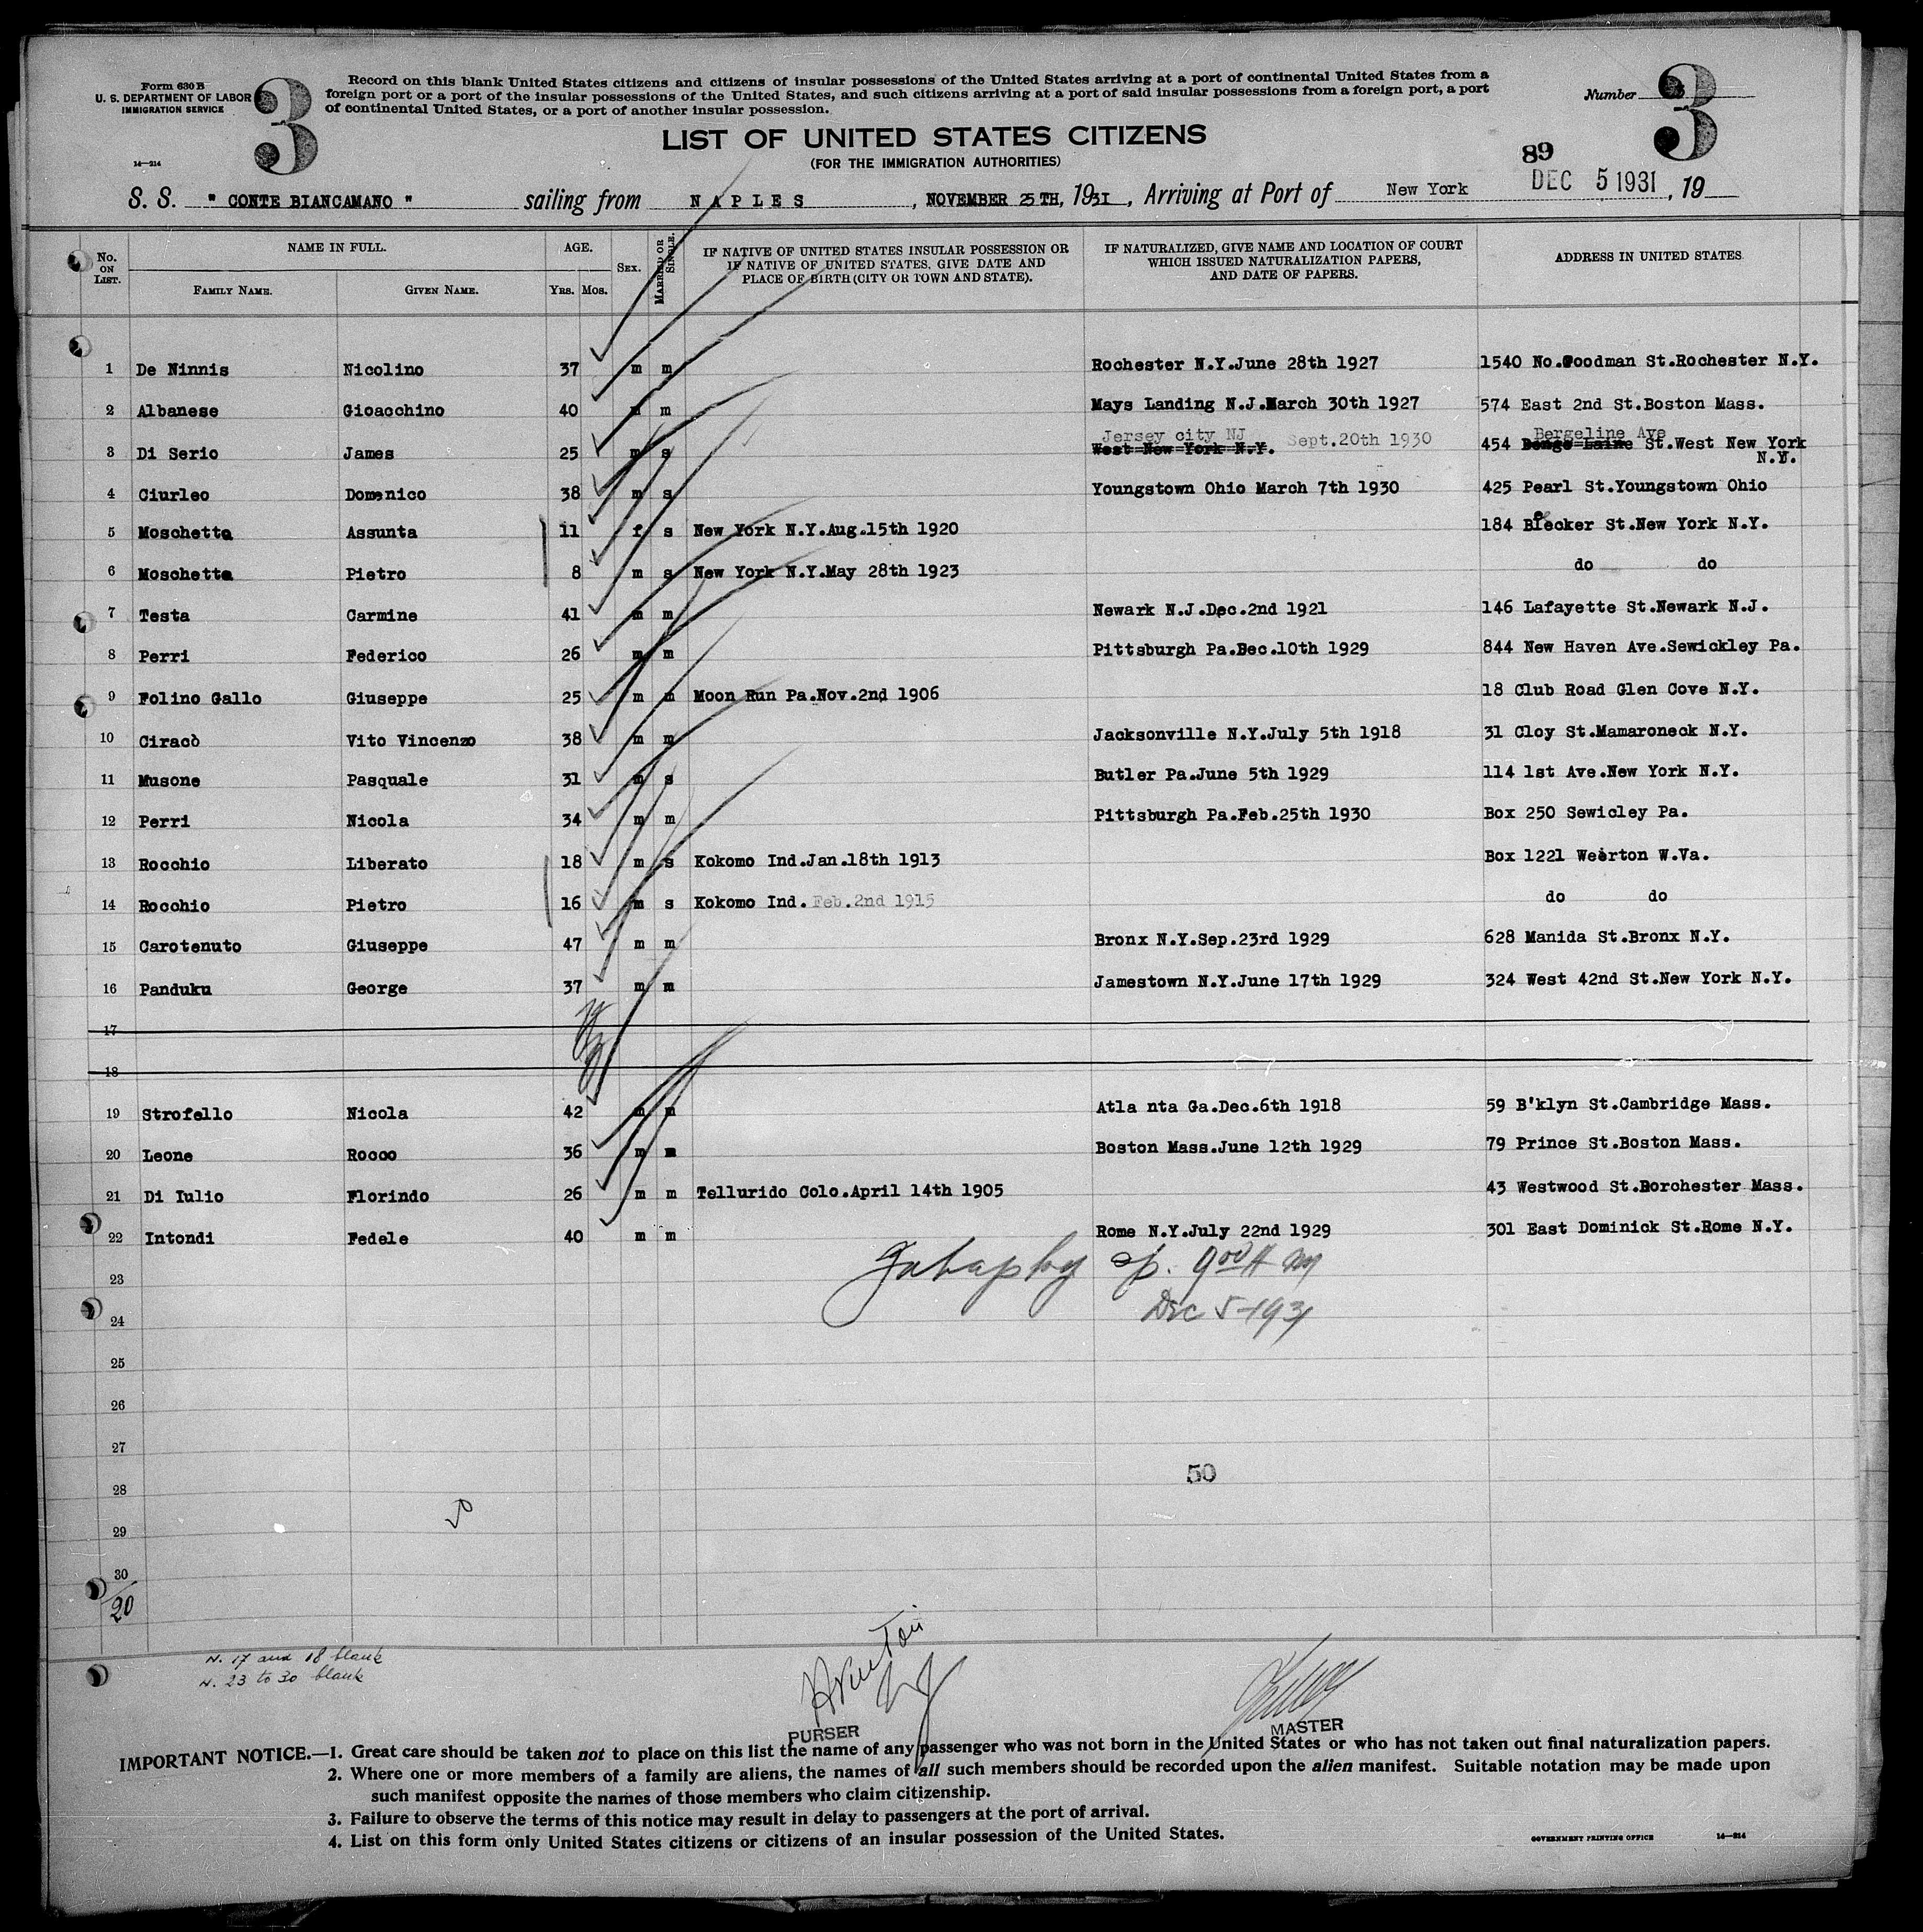 Form 630 B
U. S. DEPARTMENT OF LABOR
IMMIGRATION SERVICE
14—214
3
Record on this blank United States citizens and citizens of insular possessions of the United States arriving at a port of continental United States from a
foreign port or a port of the insular possessions of the United States, and such citizens arriving at a port of said insular possessions from a foreign port, a port
of continental United States, or a port of another insular possession.
Number 3
LIST OF UNITED STATES CITIZENS
(FOR THE IMMIGRATION AUTHORITIES)
89
DEC 5 1931
S. S. " CONTE BIANCAMANO " sailing from NAPLES, NOVEMBER 25TH, 1931, Arriving at Port of New York, 19
No. ON LIST. NAME IN FULL. FAMILY NAME. GIVEN NAME. AGE. YRS. MOS. SEX. MARRIED OR SINGLE. IF NATIVE OF UNITED STATES INSULAR POSSESSION OR IF NATIVE OF UNITED STATES, GIVE DATE AND PLACE OF BIRTH (CITY OR TOWN AND STATE). IF NATURALIZED, GIVE NAME AND LOCATION OF COURT WHICH ISSUED NATURALIZATION PAPERS, AND DATE OF PAPERS. ADDRESS IN UNITED STATES
1 De Ninnis Nicolino 37 m m Rochester N.Y.June 28th 1927 1540 No.Goodman St.Rochester N.Y.
2 Albanese Gioacchino 40 m m Mays Landing N.J.March 30th 1927 574 East 2nd St.Boston Mass.
Jersey city NJ Bergeline Ave
3 Di Serio James 25 m s West New York N.Y. Sept.20th 1930 454 St.West New York
N.Y.
4 Ciurleo Domenico 38 m s Youngstown Ohio March 7th 1930 425 Pearl St.Youngstown Ohio
5 Moschetta Assunta 11 f s New York N.Y.Aug.15th 1920 184 Blecker St.New York N.Y.
6 Moschetta Pietro 8 m s New York N.Y.May 28th 1923 do do
7 Testa Carmine 41 m m Newark N.J.Dec.2nd 1921 146 Lafayette St.Newark N.J.
8 Perri Federico 26 m m Pittsburgh Pa.Dec.10th 1929 844 New Haven Ave.Sewickley Pa.
9 Folino Gallo Giuseppe 25 m m Moon Run Pa.Nov.2nd 1906 18 Club Road Glen Cove N.Y.
10 Ciracò Vito Vincenzo 38 m m Jacksonville N.Y.July 5th 1918 31 Cloy St.Mamaroneck N.Y.
11 Musone Pasquale 31 m s Butler Pa.June 5th 1929 114 1st Ave.New York N.Y.
12 Perri Nicola 34 m m Pittsburgh Pa.Feb.25th 1930 Box 250 Sewicley Pa.
13 Rocchio Liberato 18 m s Kokomo Ind.Jan.18th 1913 Box 1221 Weirton W.Va.
14 Rocchio Pietro 16 m s Kokomo Ind. Feb.2nd 1915 do do
15 Carotenuto Giuseppe 47 m m Bronx N.Y.Sep.23rd 1929 628 Manida St.Bronx N.Y.
16 Panduku George 37 m m Jamestown N.Y.June 17th 1929 324 West 42nd St.New York N.Y.
17
18
19 Strofello Nicola 42 m m Atla nta Ga.Dec.6th 1918 59 B'klyn St.Cambridge Mass.
20 Leone Rocco 36 m m Boston Mass.June 12th 1929 79 Prince St.Boston Mass.
21 Di Iulio Florindo 26 m m Tellurido Colo.April 14th 1905 43 Westwood St.Dorchester Mass.
22 Intondi Fedele 40 m m Rome N.Y.July 22nd 1929 301 East Dominick St.Rome N.Y.
23
Dec 5-1931
24
25
26
27
50
28
29
30
20
N. 17 and 18 blank
N. 23 to 30 blank
PURSER
MASTER
IMPORTANT NOTICE.—1. Great care should be taken not to place on this list the name of any passenger who was not born in the United States or who has not taken out final naturalization papers.
2. Where one or more members of a family are aliens, the names of all such members should be recorded upon the alien manifest. Suitable notation may be made upon
such manifest opposite the names of those members who claim citizenship.
3. Failure to observe the terms of this notice may result in delay to passengers at the port of arrival.
4. List on this form only United States citizens or citizens of an insular possession of the United States.
GOVERNMENT PRINTING OFFICE 14—214